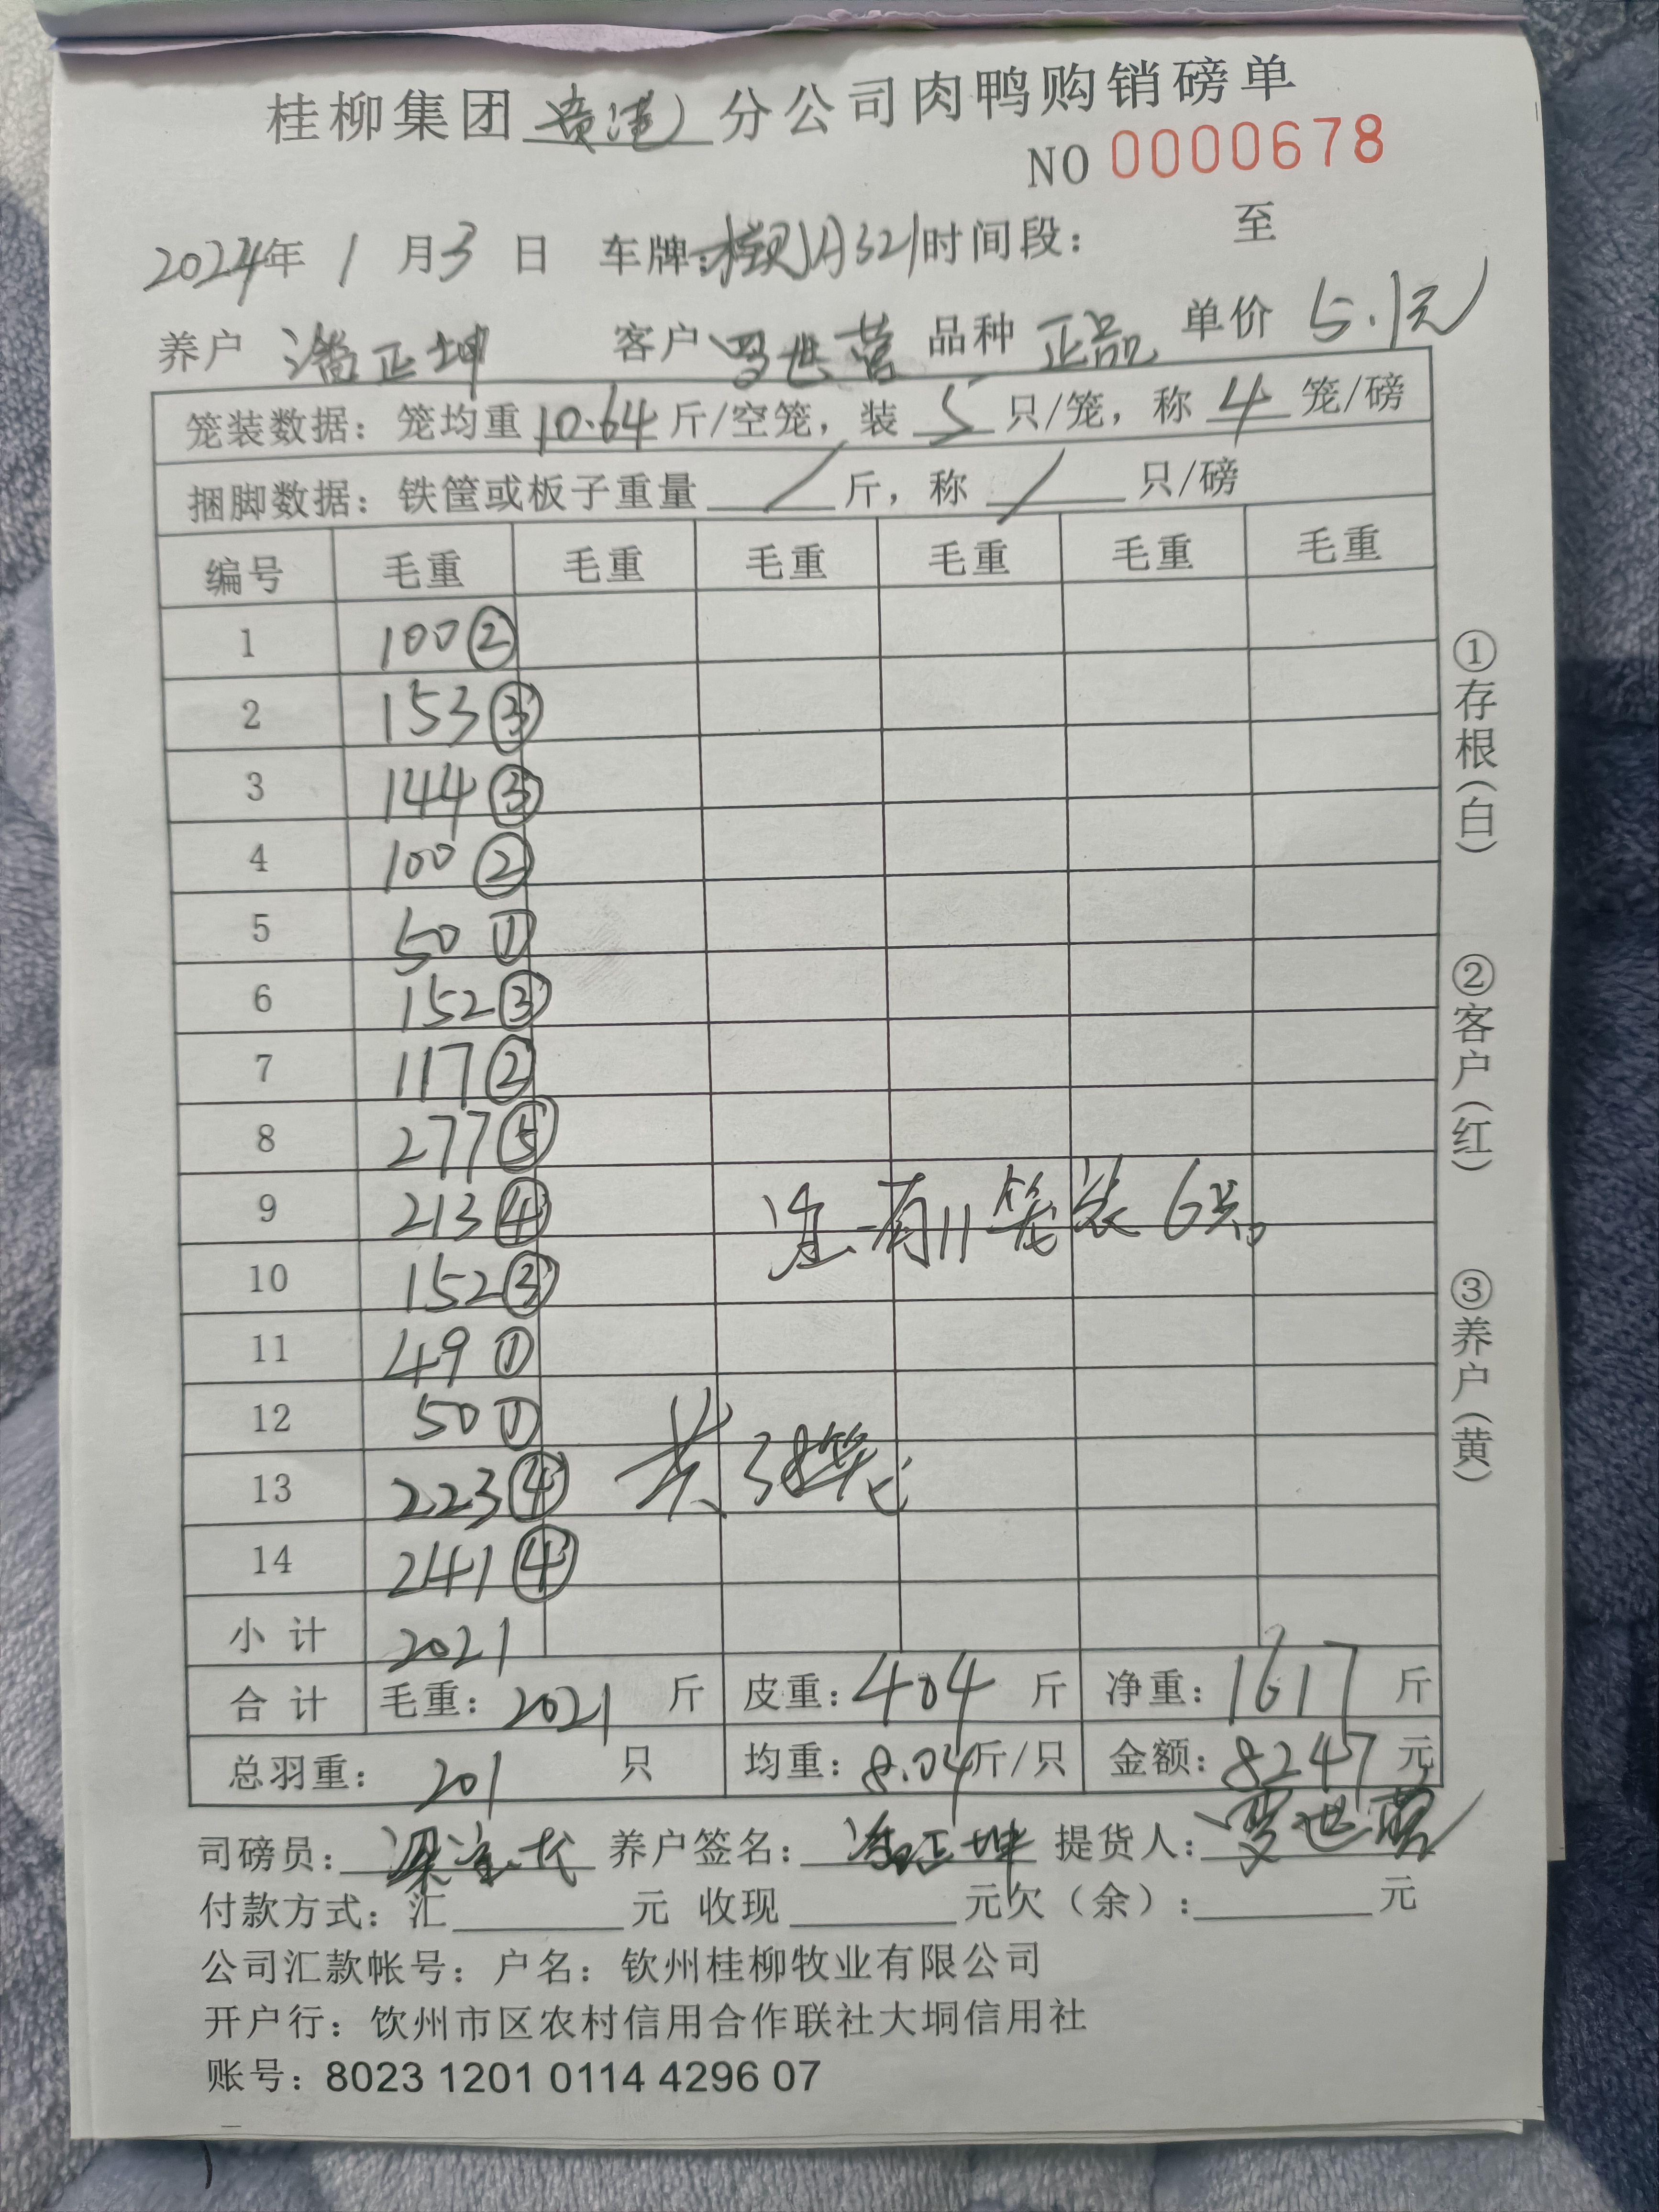 桂柳集团贵港分公司肉鸭购销磅单
NO 0000678
2024年 1 月 3 日 车牌: 321 时间段: 至
养户 潘正坤 客户 罗世营 品种 正品 单价 5.1元
笼装数据: 笼均重 10.64 斤/空笼, 装 5 只/笼, 称 4 笼/磅
捆脚数据: 铁筐或板子重量 / 斤, 称 / 只/磅
编号 毛重 毛重 毛重 毛重 毛重 毛重
1 100②
2 153③
3 144③
4 100②
5 50①
6 152③
7 117②
8 277⑤
9 213④ 有11笼装6只。
10 152③
11 49①
12 50①
13 223④ 共38笼
14 241④
小计 2021
合计 毛重: 2021 斤 皮重: 404 斤 净重: 1617 斤
总羽重: 201 只 均重: 8.04斤/只 金额: 8247 元
司磅员: 养户签名: 潘正坤 提货人: 罗世营
付款方式: 汇 元 收现 元欠(余): 元
公司汇款帐号: 户名: 钦州桂柳牧业有限公司
开户行: 钦州市区农村信用合作联社大垌信用社
账号: 8023 1201 0114 4296 07
①存根(白)
②客户(红)
③养户(黄)